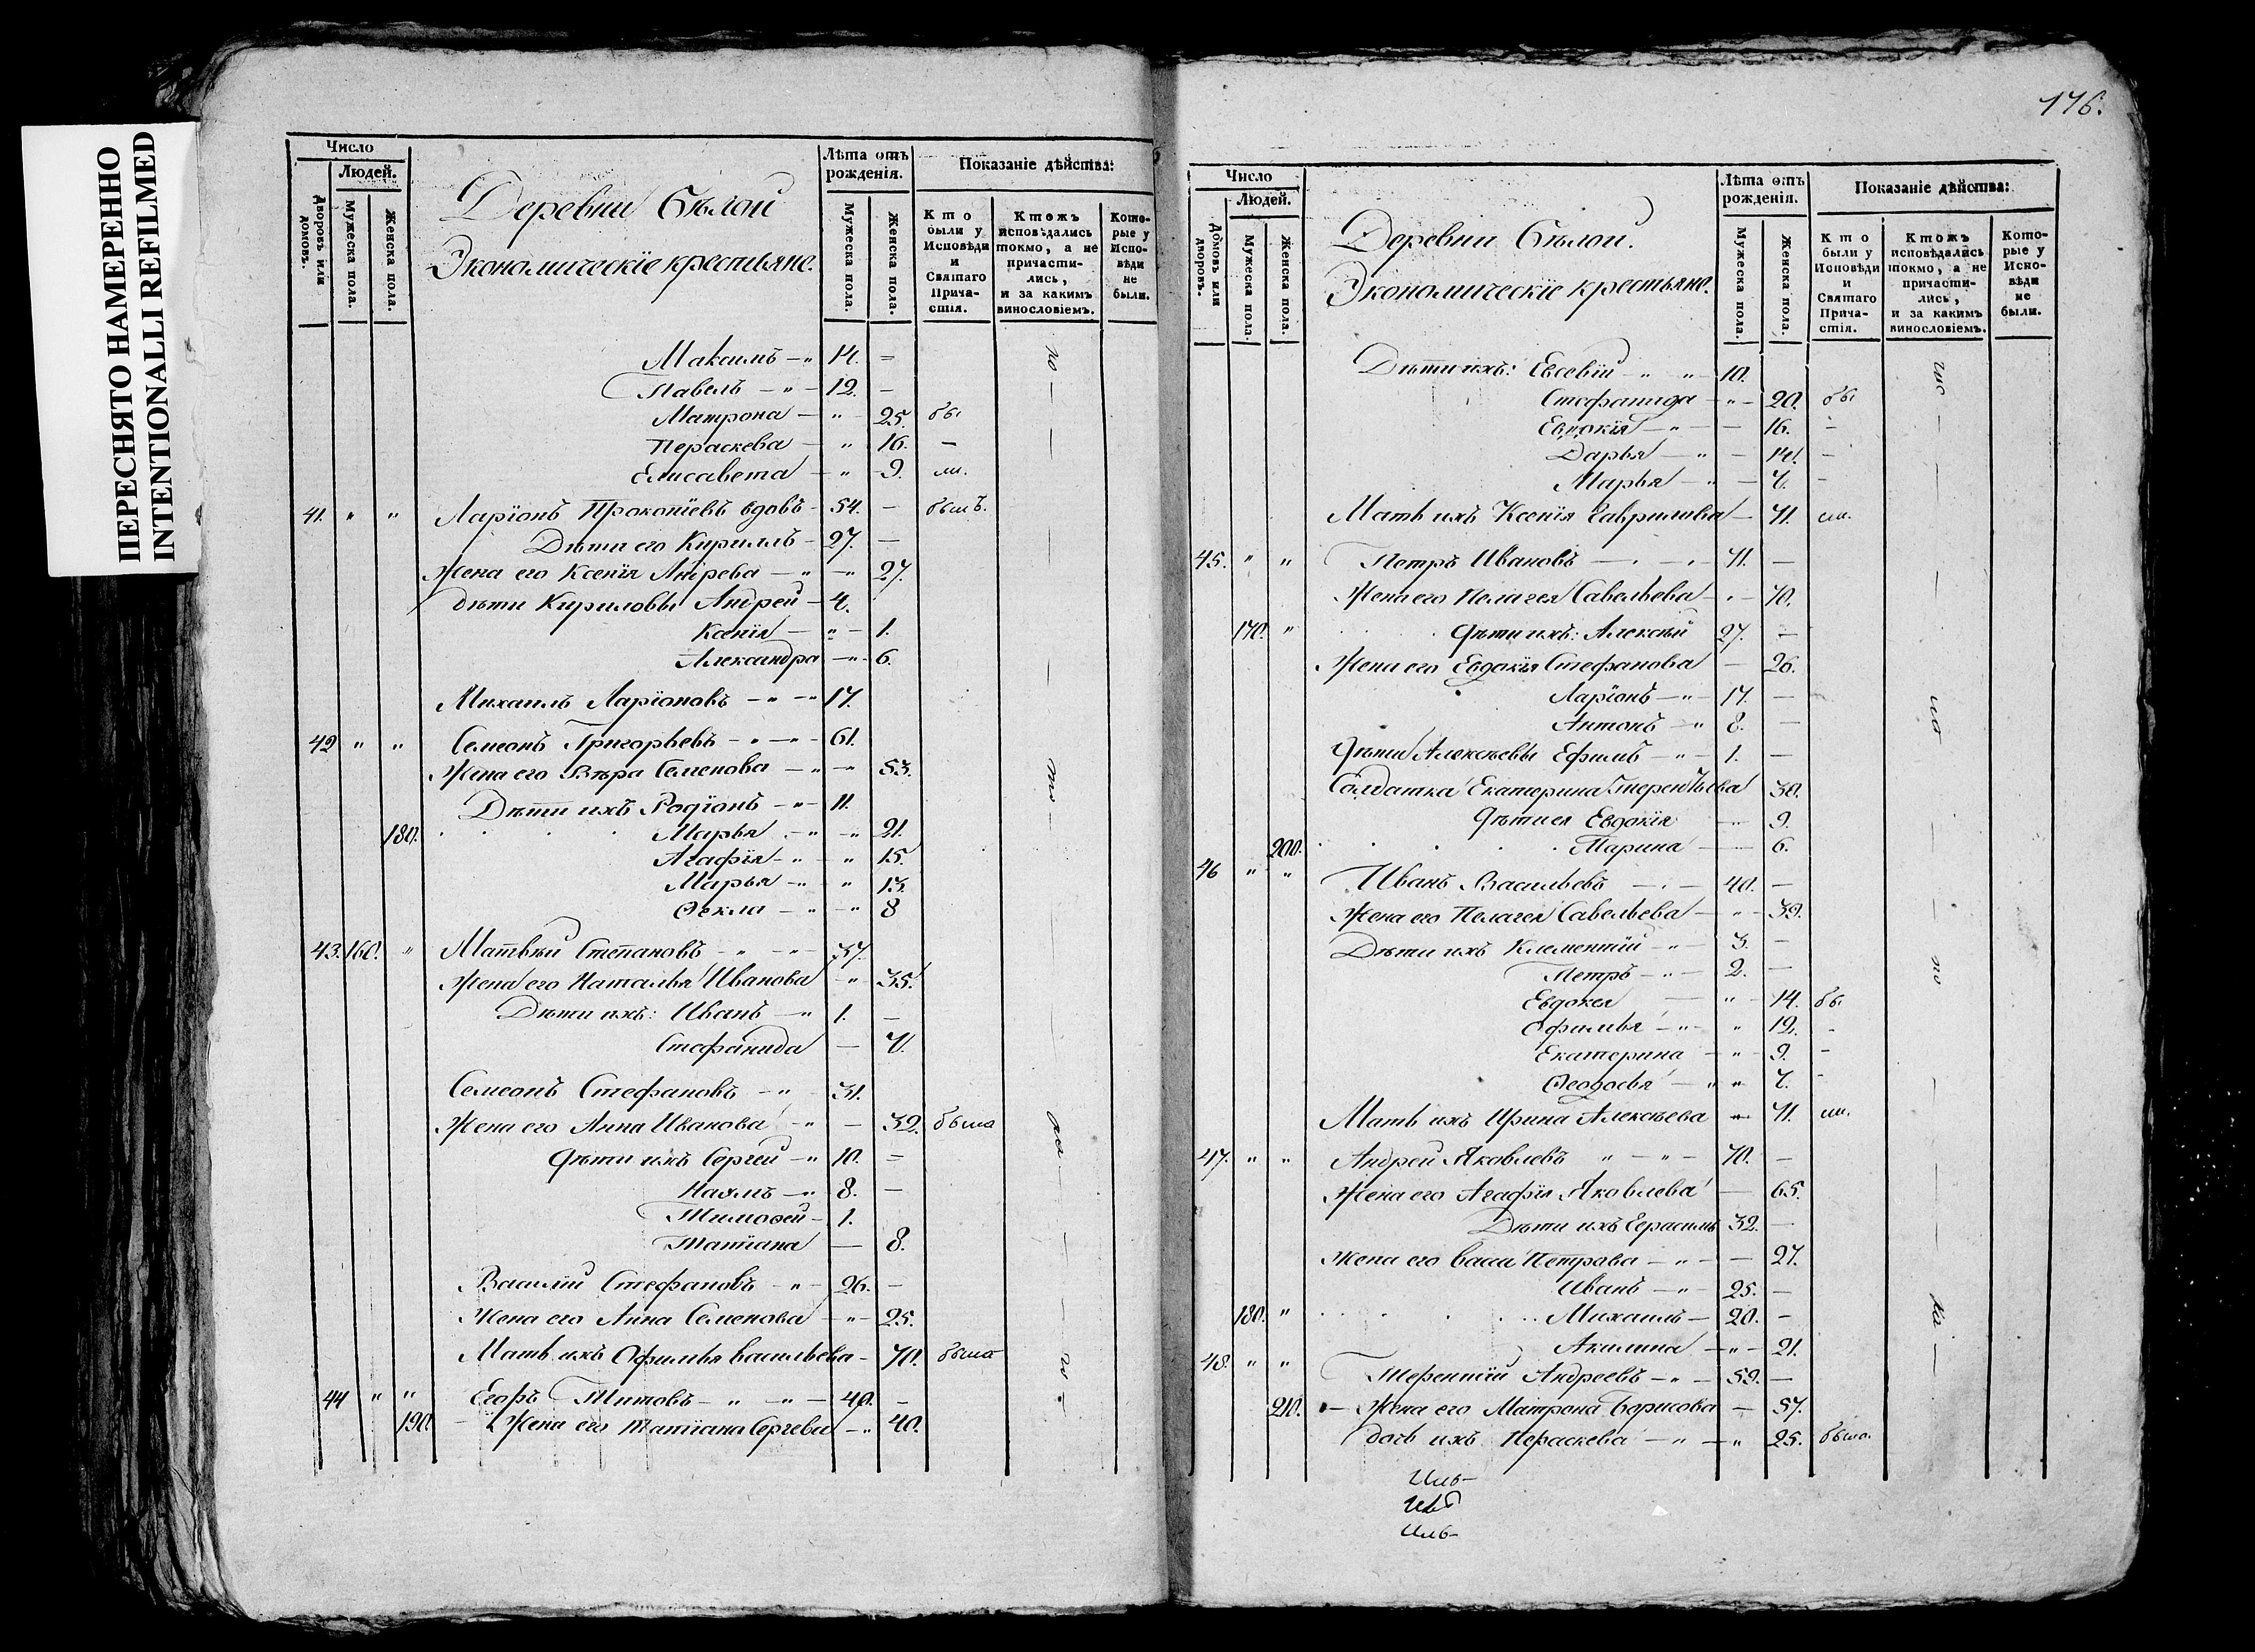 ПЕРЕСНЯТО НАМЕРЕННО
INTENTIONALLI REFILMED
Число
Людей.
Дворовъ или домовъ.
Мужеска пола.
Женска пола.
Деревни Бѣлой
Экономическіе крестьяне.
Лѣта отъ рожденія.
Мужеска пола.
Женска пола.
Показаніе дѣйства:
Кто были у Исповѣди и Святаго Причастія.
Ктожъ исповѣдались токмо, а не причастились, и за какимъ винословіемъ.
Которые у Исповѣди не были.
Максимъ — " 14. =
Павелъ — " — 12. —
Матрона — " — 25. бы
Пераскева — " 16. —
Елисавета — " 9. ли.
41. " " Ларіонъ Прокопіевъ вдовъ — 54. — былъ.
Дѣти его Кириллъ — 27. —
Жена его Ксенія Андрева — " — " 27.
дѣти Кириловы Андрей — 4.
Ксенія — " — 1.
Александра — " — 6.
Михаилъ Ларіоновъ — " — " 17.
42 " " Семеонъ Григорьевъ — " — " — 61.
Жена его Вѣра Семенова — " — " 53.
Дѣти ихъ Родіонъ — " — 11.
180. Марья — " — " 21.
Агафія — " — " 15.
Марья — " — " 13.
Ѳекла — " — " 8
43. 160. " Матвѣй Степановъ — " — " — 37.
Жена его Наталья Иванова — " — 35.
Дѣти ихъ: Иванъ — " 1. —
Стефанида — 7.
Семеонъ Стефановъ — " — 31.
Жена его Анна Иванова — " — 32. была
дѣти ихъ Сергей — " 10. =
Наумъ — " 8. —
Тимоѳей — 1.
Татіана — 8.
Василій Стефановъ — " — 26. —
Жена его Анна Семенова — " — 25.
Мать ихъ Офимья Васильева — 70. была
44 " " Егоръ Титовъ — " — " — 40. —
190. — Жена его Татіана Сергеева — " 40.
176.
Число
Людей.
Домовъ или дворовъ.
Мужеска пола.
Женска пола.
Деревни Бѣлой.
Экономическіе крестьяне.
Лѣта отъ рожденія.
Мужеска пола.
Женска пола.
Показаніе дѣйства:
Кто были у Исповѣди и Святаго Причастія.
Ктожъ исповѣдались токмо, а не причастились, и за какимъ винословіемъ.
Которые у Исповѣди не были.
Дѣти ихъ: Евсевій — " " — 10.
Стефанида — " — 20. бы
Евдокія — " — 16. —
Дарья — " — 14. —
Марья — " — 7. —
Мать ихъ Ксенія Гаврилова — 71. ли.
45. " " Петръ Ивановъ — " — " 71. —
Жена его Пелагея Савельева — " — 70.
170. " дѣти ихъ: Алексѣй 27. —
Жена его Евдокія Стефанова — 26.
Ларіонъ — " — 17. —
Антонъ — " 8. —
дѣти Алексѣевы Ефимъ — " — 1. —
Солдатка Екатерина Терентьева 30.
дѣти ея Евдокія — " 9.
200. Марина — 6.
46 " " Иванъ Васильевъ — " — 40. —
Жена его Пелагея Савельева — " — 39.
Дѣти ихъ Клементій — " — 3. —
Петръ — " — 2. —
Евдокея — " — 14. бы
Офимья — " — " 12. —
Екатерина — " — 9. —
Ѳеодосья — " " 7. —
Мать ихъ Ирина Алексѣева — " 71. ли.
47. " " Андрей Яковлевъ " — " — 70. —
Жена его Агафія Яковлева — 65.
Дѣти ихъ Герасимъ 32. —
жена его Васса Петрова — " — 27.
Иванъ — " — 25. —
180. " Михаилъ — 20. —
Акилина — " — 21.
48. " " Терентій Андреевъ — " — 59. —
210. — Жена его Матрона Борисова — 57.
дочь ихъ Пераскева — " — " 25. была.